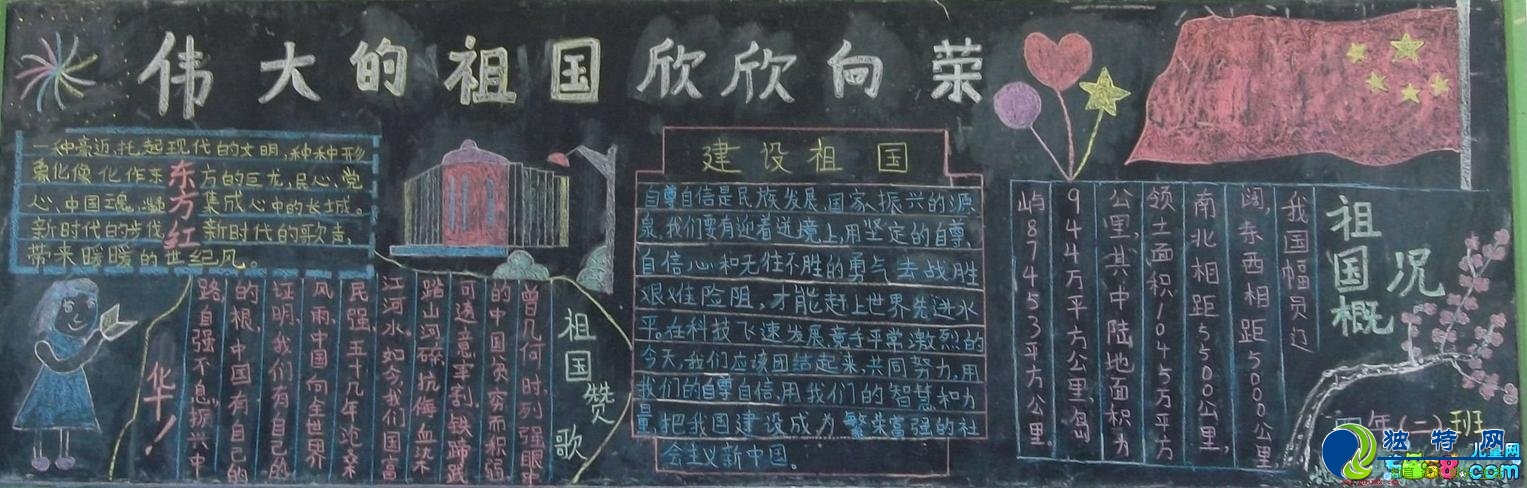 伟大的祖国欣欣向荣
一种豪迈,托起现代的文明,种种形
象化像化作东方的巨龙,民心、党
心、中国魂,
集成心中的长城。
新时代的步伐,新时代的歌声,
带来暖暖的世纪风。
东方红
建设祖国
自尊自信是民族发展,国家振兴的源
泉,我们要有迎着逆境上,用坚定的自尊、
自信心和无往不胜的勇气去战胜
艰难险阻,才能赶上世界先进水
平。在科技飞速发展竟手平常激烈的
今天,我们应该团结起来,共同努力,用
我们的自尊自信,用我们的智慧和力
量,把我国建设成为繁荣富强的社
会主义新中国。
祖国概况
我国幅员辽
阔,东西相距5000公里
南北相距5500公里,
领土面积1045万平方
公里,其中陆地面积为
944万平方公里,岛
屿87453平方公里。
祖国赞歌
曾几何时,列强眼中
的中国贫穷而积弱
可遗意事割,铁蹄践
踏山河碎,抗侮血染
江河水。如今,我们国富
民强,五十几年沧桑
风雨,中国向全世界
证明,我们有自己的
的根,中国有自己的
路,自强不息,振兴中
华!
年(二)班
独特网
儿童网
.com